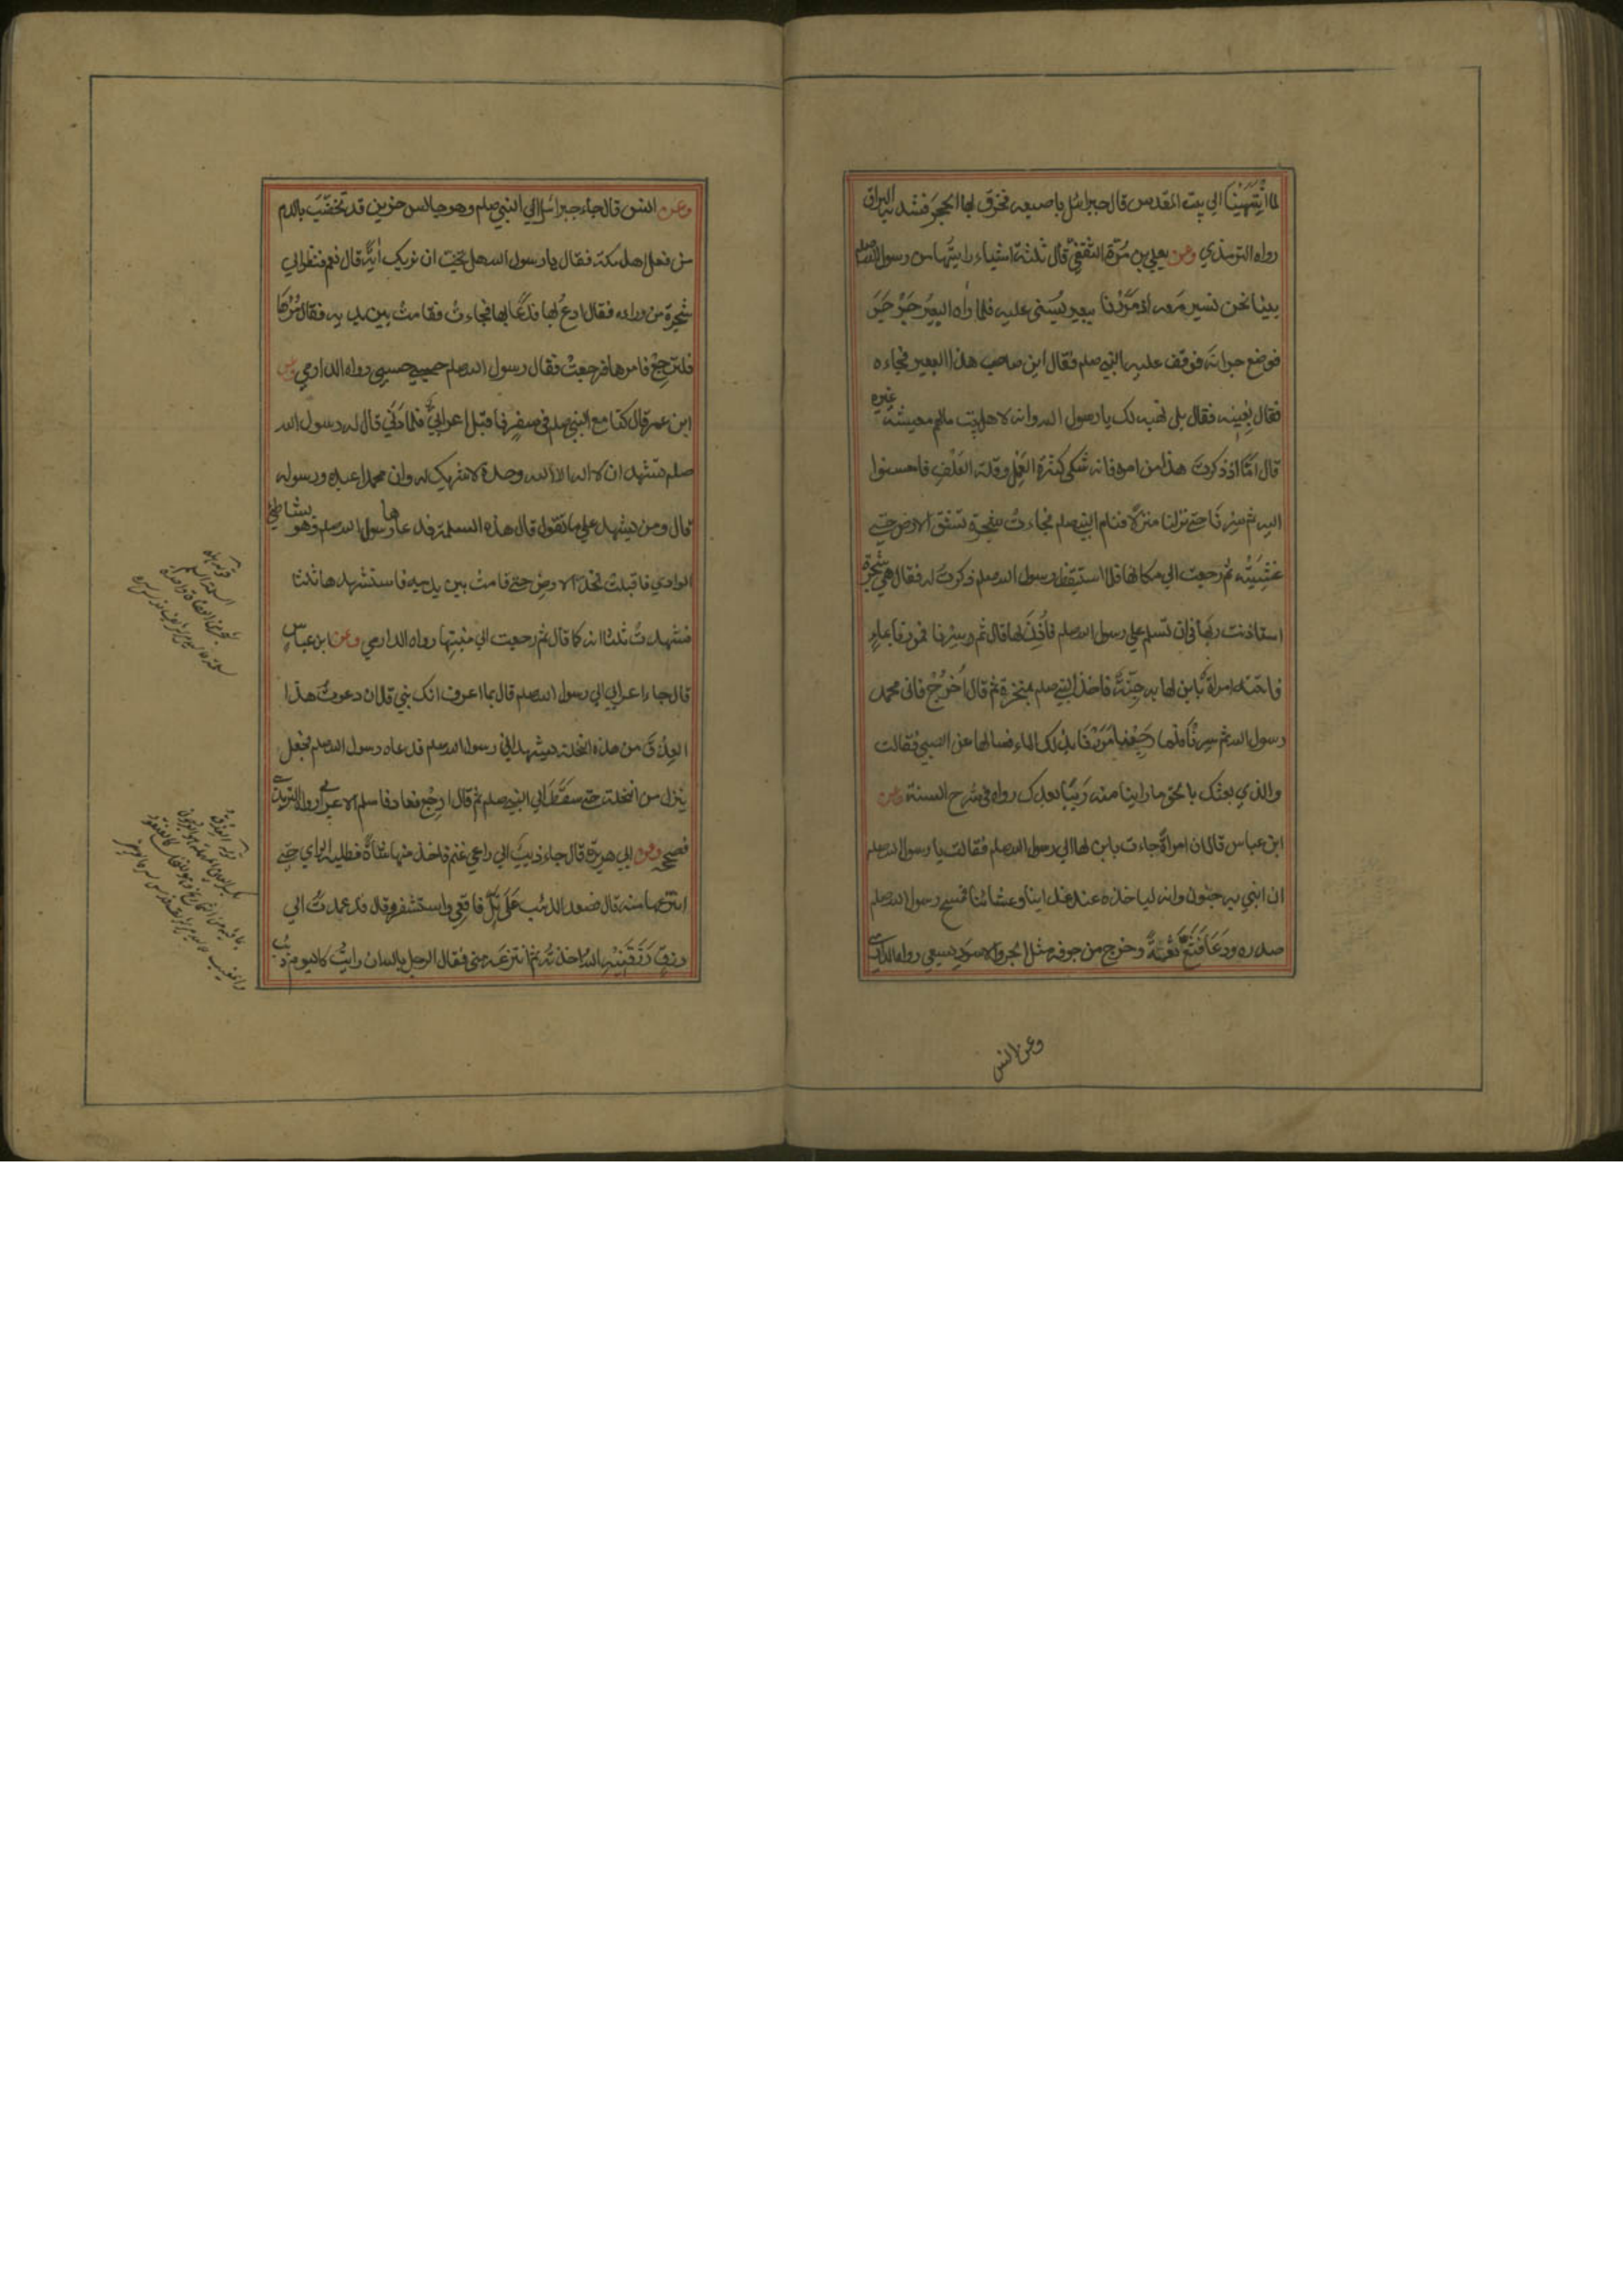 لما انْتَهَيْنَا الي بيت المقدس قال جبرائيل باصبعه فخرق بها الحجر فشد به البراق
رواه الترمذي وعن يعلي بن مُرّة الثقفيّ قال ثلثة اشياء رايتُها من رسول الله صلعم
بينا نحن نسير معه اذ مَرَرْنا ببعير يُسنى عليه فلما راه البعيرُ جَرْجَرَ
فوضع جرانَه فوقف عليه النبي صلعم فقال اين صاحب هذا البعير فجاءه
فقال بِعْنِيه فقال بلى نهبه لک يا رسول الله وانه لاهل بيت مالهم معيشة غيره
قال اَمّا اذ ذكرتَ هذا من امره فانه شكى كثرة العَمَل وقلة العَلَفِ فاحسنوا
اليه ثم سِرْنَا حتي نزلنا منزلًا فنام النبي صلعم فجاءتْ شجرة تشق الارض حتي
غشِيَتْه ثم رجعت الي مكانها فلما استيقظ رسول الله صلعم ذكرتُ له فقال هي شجرة
استاذنت ربها في ان تسلم علي رسول الله صلعم فاُذِنَ لها قال ثم سِرْنا فمررنا بماءٍ
فاتته امراةٌ بابن لها به جِنّةٌ فاخذ النبي صلعم بمنخره ثم قال اُخرُجْ فانى محمد
رسول الله ثم سِرْنَا فلما رجعنا مَرَرْنَا بذلک الماء فسالها عن الصبي فقالت
والذي بعثک بالحق ما راينا منه رَيْبًا بعدک رواه في شرح السنة وعن
ابن عباس قال ان امراةً جاءت بابن لها الي رسول الله صلعم فقالت يا رسول الله صلعم
ان ابني به جنون وانه لياخذه عند غدائنا وعشائنا فمسح رسول الله صلعم
صدره ودَعَا فَثَعَّ ثَعَّةً وخرج من جوفه مثل الجرو الاسود يسعي رواه الدارمي
وعن انس
وعن انس قال جاء جبرائيل الي النبي صلعم وهو جالس حزين قد تخضّبَ بالدم
من فعل اهل مكة فقال يا رسول الله هل تحبّ ان نريک اٰيةً قال نعم فنظر الي
شجرة من ورائه فقال ادعُ بها فدَعَا بها فجاءتْ فقامتْ بين يديه فقال مُرْهَا
فلترجِعْ فامرها فرجعتْ فقال رسول الله صلعم حسبي حسبي رواه الدارمي وعن
ابن عمر قال كنا مع النبي صلعم في سفرٍ فاقبل اعرابيٌّ فلما دَنَي قال له رسول الله
صلعم تشهد ان لا اله الا الله وحده لا شريک له وان محمدا عبده ورسوله
قال ومن يشهد علي ما تقول قال هذه السلمة فدعاها رسول الله صلعم وهو بشاطئ
الوادي فاقبلت تخدّ الارض حتي قامتْ بين يديه فاستشهدها ثلثا
فشهدتْ ثلثا انه كما قال ثم رجعت الي منبتها رواه الدارمي وعن ابن عباس
قال جاء اعرابي الي رسول الله صلعم قال بما اعرف انک نبي قال ان دعوتُ هذا
العِذْقَ من هذه النخلة يشهد اني رسول الله صلعم فدعاه رسول الله صلعم فجعل
ينزل من النخلة حتي سقَطَ الي النبي صلعم ثم قال ارجِعْ فعاد فاسلم الاعرابي رواه الترمذي
فصححه وعن ابي هريرة قال جاء ذيبٌ الي راعي غنم فاخذ منها شاةً فطلبه الراعي حتي
انتزعها منه قال فصعد الذئب عَلَى تَلٍّ فاقعي واستثفر وقال قد عمدتُ الي
رزقٍ رَزَقَنِيْه اللهُ اخذتُه ثم انتزعتَه مني فقال الرجل بالله ان رايتُ كاليوم ذئب